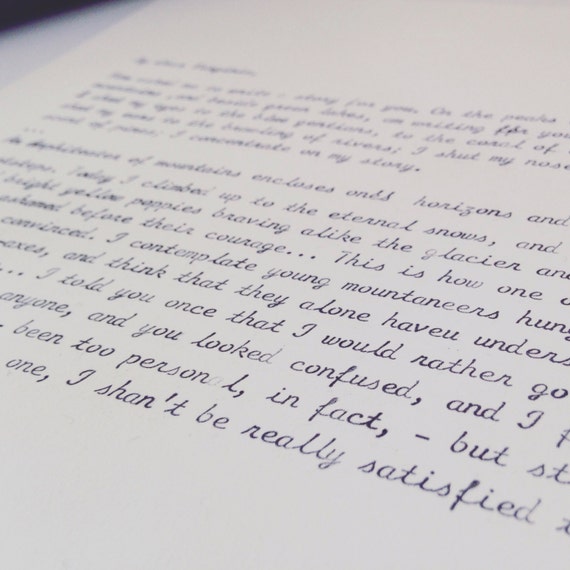 You asked me to write a story for you. On the peaks
mountains, and beside green lakes, am writing for you
I shut my eyes to the blue gentians, to the coral of
shut my ears to the brawling of rivers; I shut my nose
scent of pines; I concentrate on my story.
...
An Amphitheater of mountains encloses one's horizons and
footsteps. Today I climbed up to the eternal snows, and
bright yellow poppies braving alike the glacier and
ashamed before their courage... This is how one
convinced. I contemplate young mountaneers hung
axes, and think that they alone haveu unders
... I told you once that I would rather go
anyone, and you looked confused, and I
been too personal, in fact, - but st
one, I shan't be really satisfied